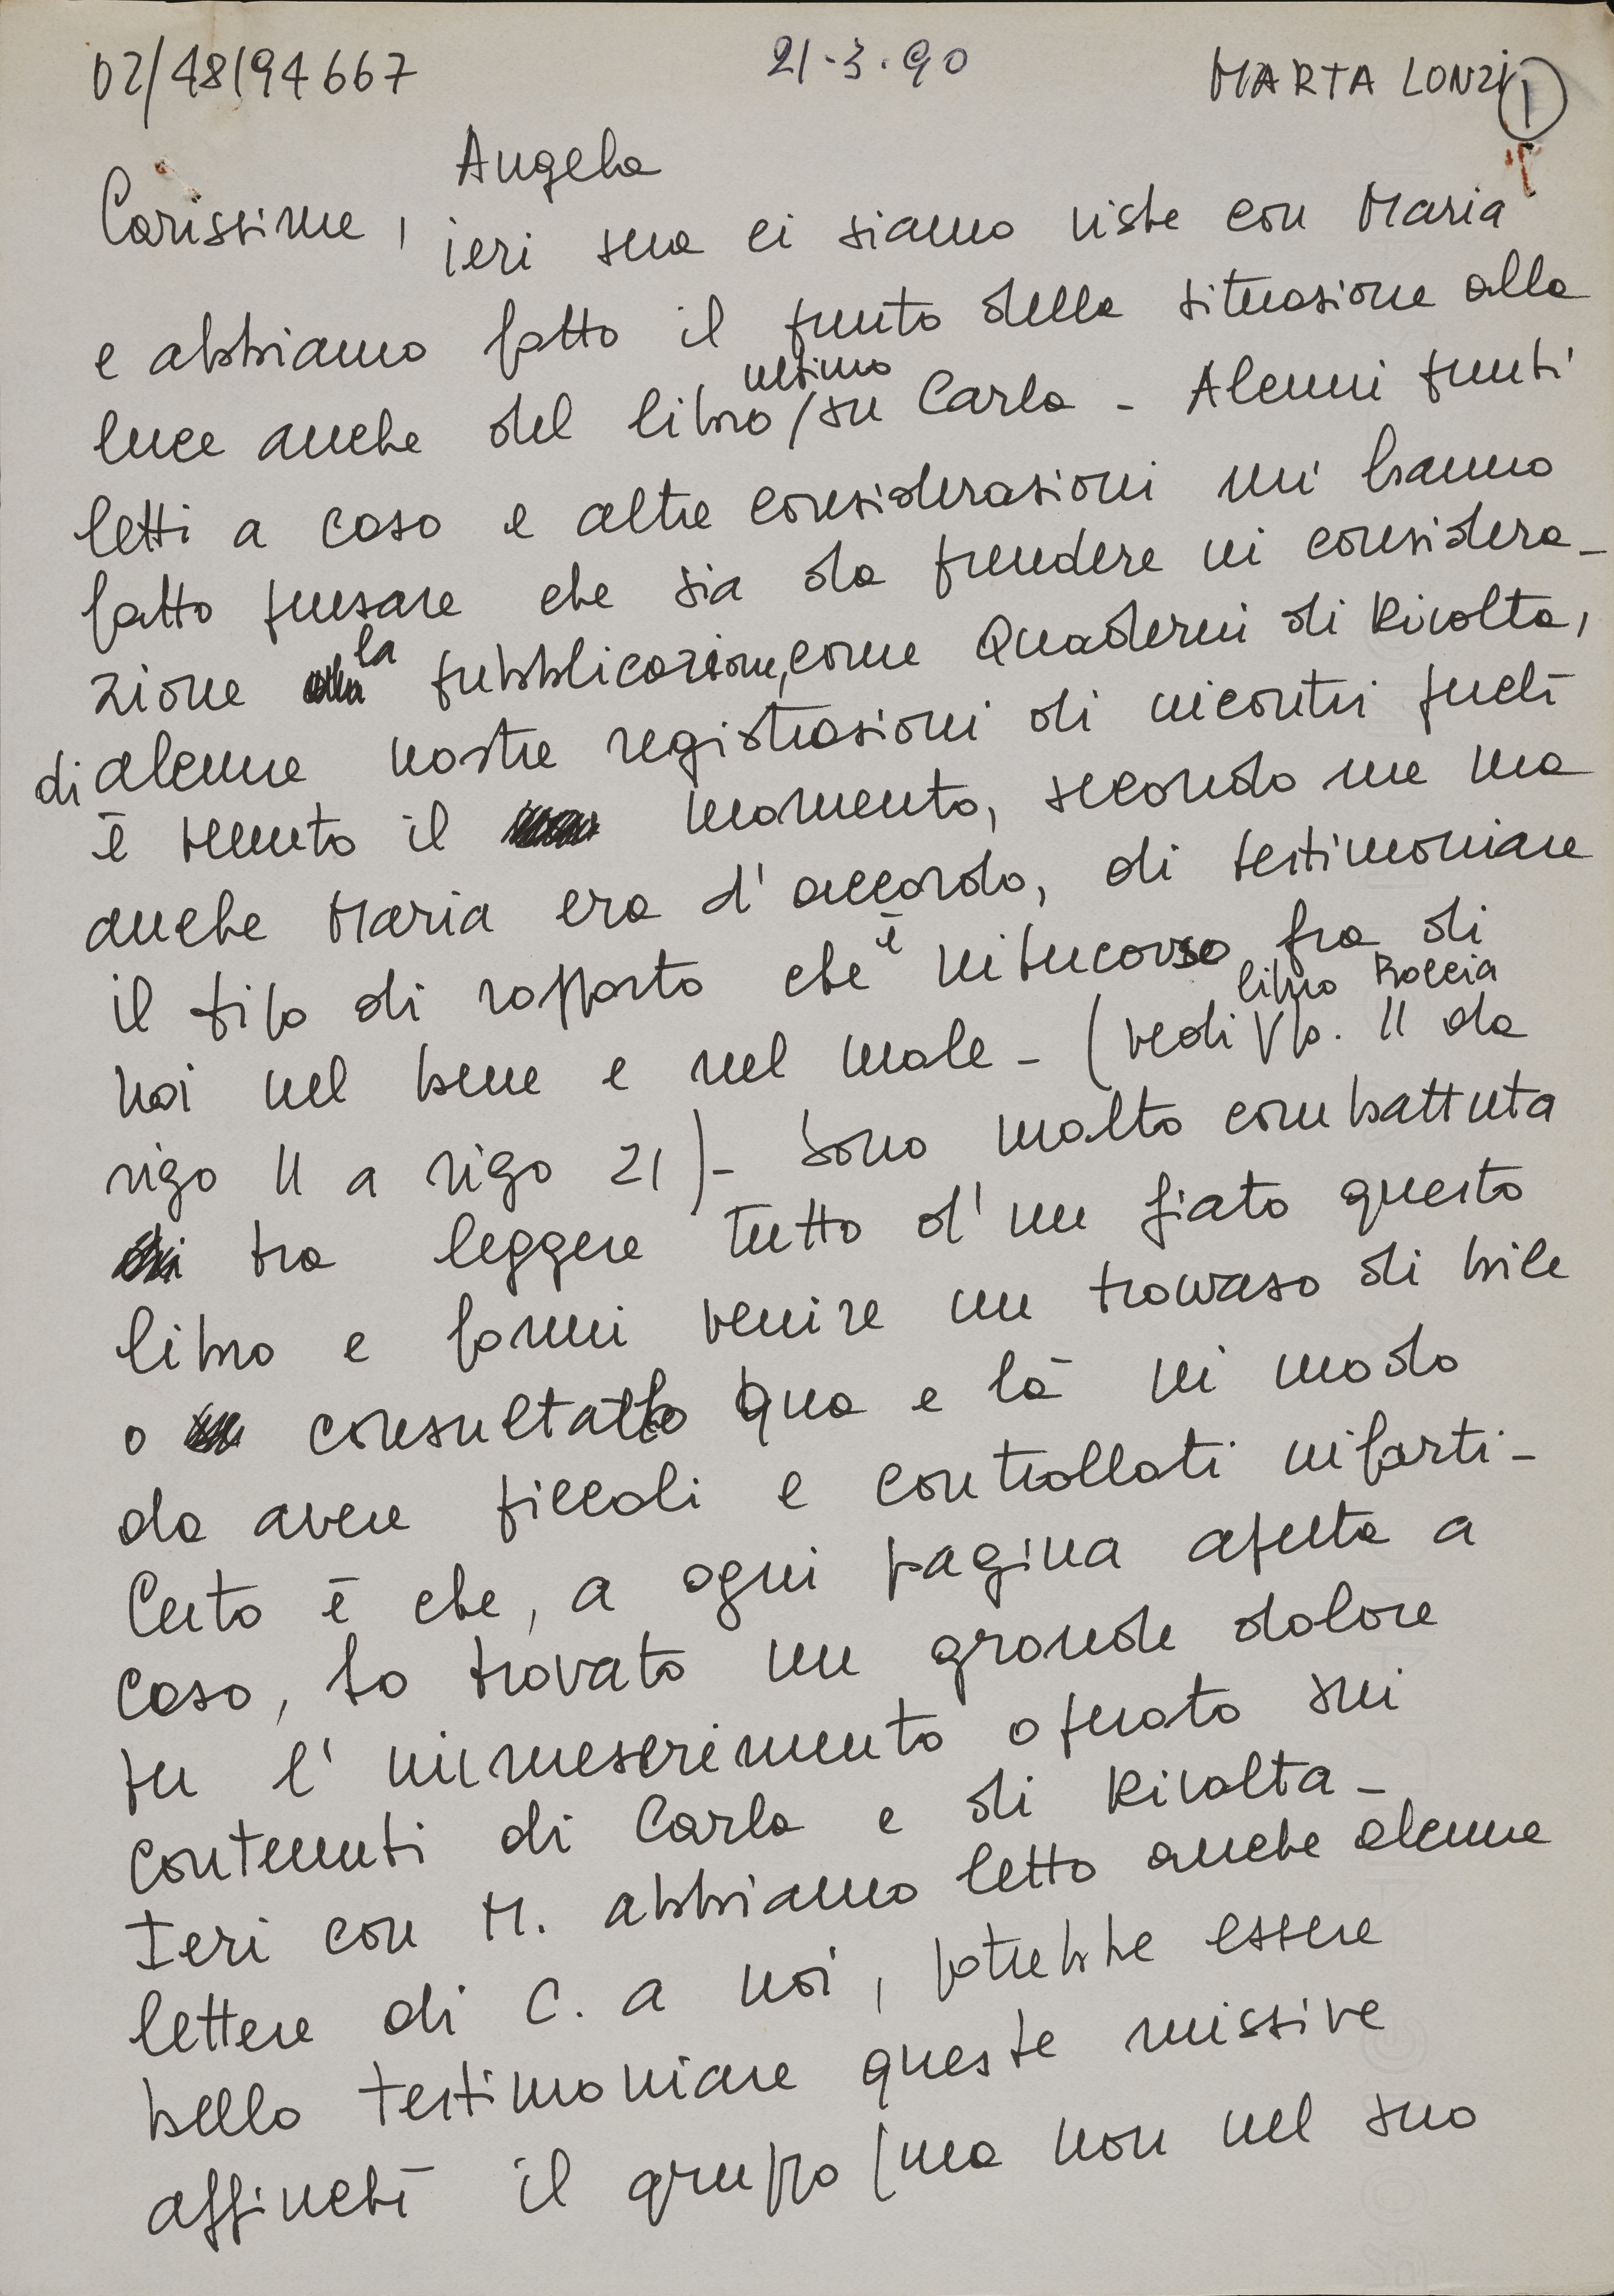 02/48194667 21.3.90 MARTA LONZI 1
Angela
Carissime, ieri sera ci siamo viste con Maria
e abbiamo fatto il punto della situazione alla
ultimo
luce anche del libro / su Carla - Alcuni punti
letti a caso e altre considerazioni mi hanno
fatto pensare che sia da prendere in considera-
la
zione pubblicazione, come Quaderni di Rivolta,
di alcune nostre registrazioni di incontri perché
è venuto il momento, secondo me ma
anche Maria era d'accordo, di testimoniare
il tipo di rapporto che è intercorso fra di
libro Boccia
noi nel bene e nel male - (vedi V p. 11 da
rigo 11 a rigo 21) - Sono molto combattuta
tra leggere tutto d'un fiato questo
libro e farmi venire un travaso di bile
o consultarlo qua e là in modo
da avere piccoli e controllati infarti -
Certo è che, a ogni pagina aperta a
caso, ho trovato un grande dolore
per l'immeserimento operato sui
contenuti di Carla e di Rivolta -
Ieri con M. abbiamo letto anche alcune
lettere di C. a noi, potrebbe essere
bello testimoniare queste missive
affinché il gruppo (ma non nel suo